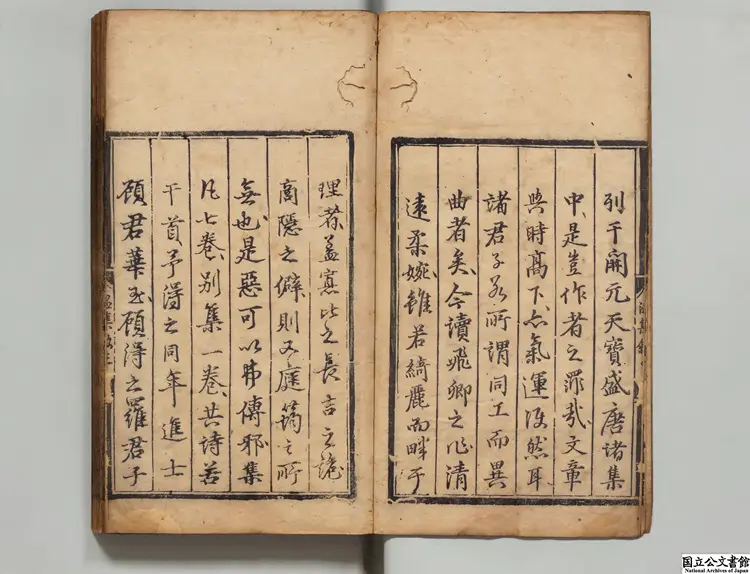 列于開元天寶盛唐諸集
中是豈作者之罪哉文章
與時高下亦氣運使然耳
諸君子如所謂同工而異
曲者矣今讀飛卿之作清
遠柔婉雖若綺麗而畔于
理者蓋寡比之長言之詭
商隱之僻則又庭筠之所
無也是惡可以弗傳邪集
凡七卷別集一卷共詩若
干首予得之同年進士
顧君華玉顧得之羅君子
国立公文書館
National Archives of Japan